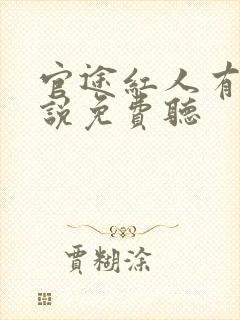 官途紅人有
說免費聽
賈糊涂